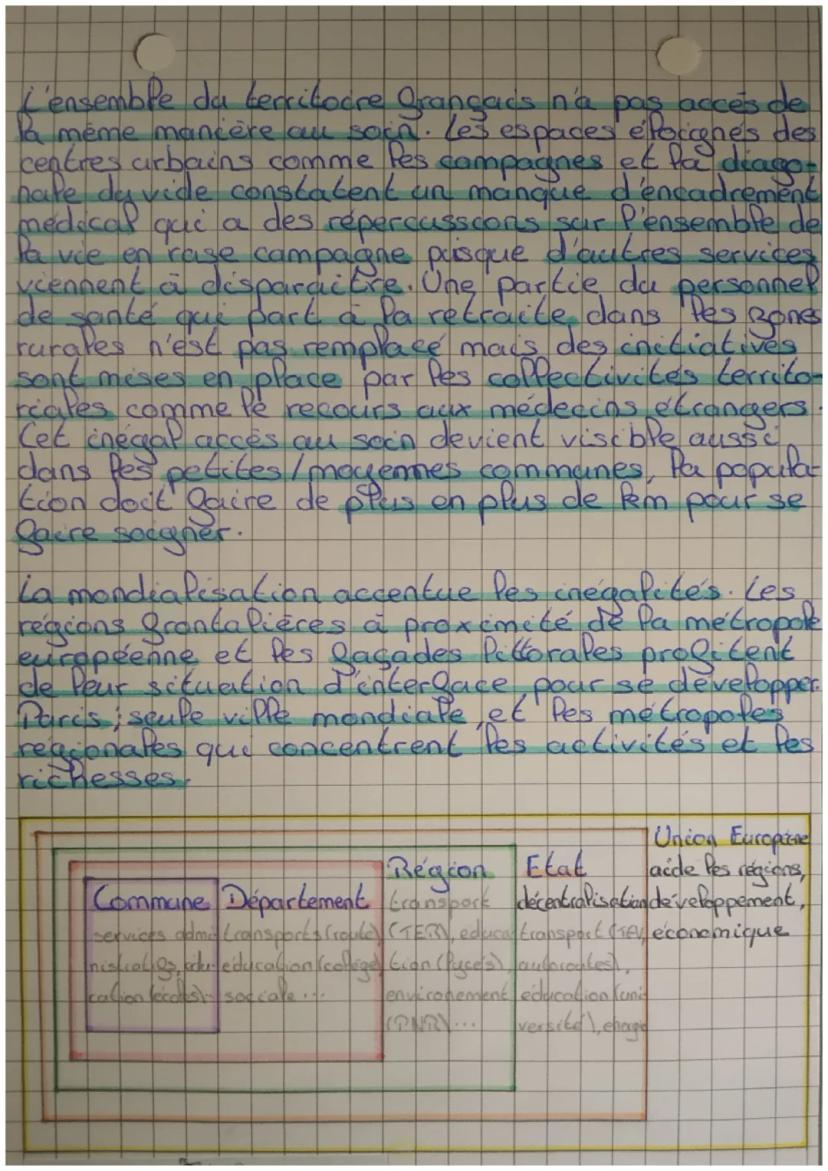 L'ensemble du territoire français n'a pas accès de
la même manière au soin. Les espaces éloignés des
centres urbains comme les campagnes et la diago-
nale du vide constatent un manque d'encadrement
médical qui a des répercussions sur l'ensemble de
la vie en rase campagne puisque d'autres services
viennent à disparaître. Une partie du personnel
de santé qui part à la retraite, dans les zones
rurales n'est pas remplacé mais des initiatives
sont mises en place par les collectivités territo-
riales comme le recours aux médecins étrangers.
Cet inégal accès au soin devient visible aussi
dans les petites/moyennes communes, la popula-
tion doit faire de plus en plus de km pour se
faire soigner.
La mondialisation accentue les inégalités. Les
régions frontalières à proximité de la métropole
européenne et les façades littorales profitent
de leur situation d'interface pour se développer.
Paris ; seule ville mondiale, et les métropoles
régionales qui concentrent les activités et les
richesses.
Commune
services admi
nistratifs, édu
cation (écoles)
Département
transports (route)
éducation (collège)
sociale ...
Région
transport
(TER), educa
tion (lycés),
environement
(PNR) ...
Etat
décentralisation
transport (TGV,
autoroutes),
éducation (uni
versité),
Union Européene
aide les régions,
développement,
économique